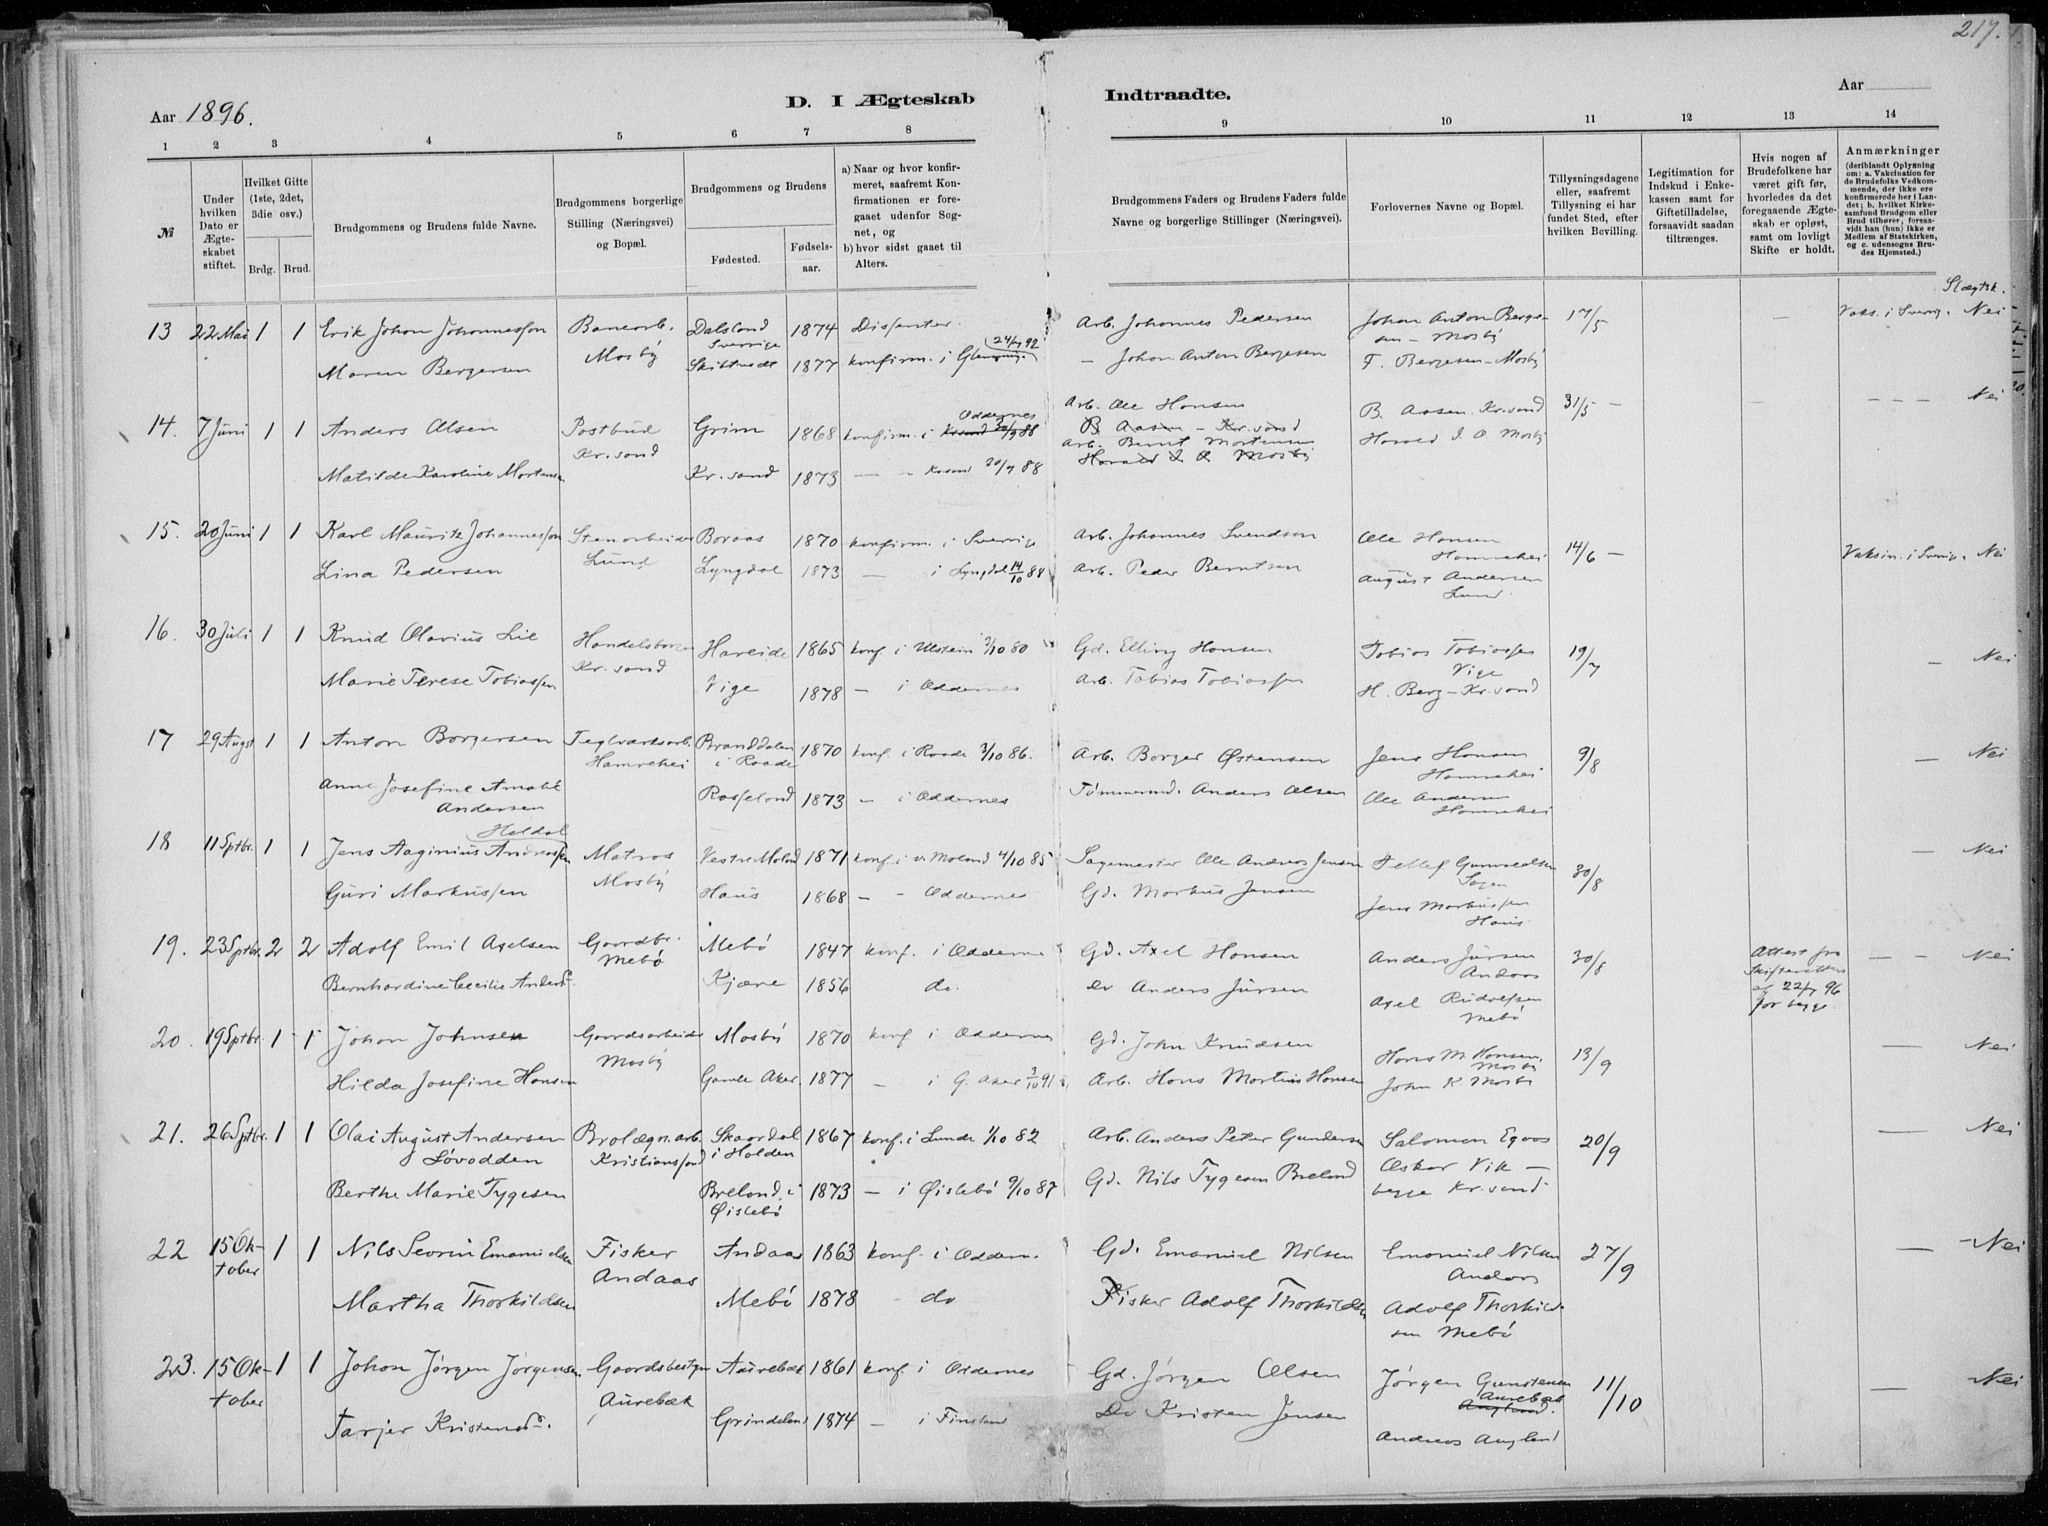 217.
Aar 1896.
D. I Ægteskab
Indtraadte.
Aar
1 2 3 4 5 6 7 8 9 10 11 12 13 14
№
Under hvilken Dato er Ægteskabet stiftet.
Hvilket Gifte (1ste, 2det, 3die osv.)
Brdg. Brud.
Brudgommens og Brudens fulde Navne.
Brudgommens borgerlige Stilling (Næringsvei) og Bopæl.
Brudgommens og Brudens
Fødested. Fødselsaar.
a) Naar og hvor konfirmeret, saafremt Konfirmationen er foregaaet udenfor Sognet, og
b) hvor sidst gaaet til Alters.
Brudgommens Faders og Brudens Faders fulde Navne og borgerlige Stillinger (Næringsvei).
Forlovernes Navne og Bopæl.
Tillysningsdagene eller, saafremt Tillysning ei har fundet Sted, efter hvilken Bevilling.
Legitimation for Indskud i Enkekassen samt for Giftetilladelse, forsaavidt saadan tiltrænges.
Hvis nogen af Brudefolkene har været gift før, hvorledes da det foregaaende Ægteskab er opløst, samt om lovligt Skifte er holdt.
Anmærkninger
(deriblandt Oplysning om: a. Vakcination for de Brudefolks Vedkommende, der ikke ere konfirmerede her i Landet; b. hvilket Kirkesamfund Brudgom eller Brud tilhører, forsaavidt han (hun) ikke er Medlem af Statskirken, og c. udensogns Brudes Hjemsted.)
Slægtsk.
13 22 Mai 1 1 Erik Johan Johannesson Banearb. Dalsland 1874 Dissenter. Arb. Johannes Pedersen Johan Anton Berge- 17/5 — Vaks. i Sverig. Nei
Mosby Sverige 24/ 92 sen - Mosby
Maren Bergersen 1877 konfirm. i — Johan Anton Bergesen F. Bergesen - Mosby
14. 7 Juni 1 1 Anders Olsen Postbud Grim 1868 konfirm. i Oddernes Arb. Ole Hansen B. Aasen Kr.sand 31/5 — Nei
Kr.sand B. Aasen - Kr.sand Harald I. O. Mosby
Arb. Bernt Mortensen
Matilde Karoline Mortensen Kr.sand 1873 — " Krsand 88 Harald I. O. Mosby
15. 20 Juni 1 1 Karl Mauritz Johannesson Stenarbeider Boraas 1870 konfirm. i Sverige Arb. Johannes Svendson Ole Hansen 14/6 — Vaksin. i Sverig. Nei
Lund Hamrehei
Lina Pedersen Lyngdal 1873 — i Lyngdal 14/10 88 Arb. Peder Berntsen August Andersen
Lund
16. 30 Juli 1 1 Knud Olavius Lie Handelsborger Hareide 1865 konf. i Ulstein /10 80 Gd. Elling Hansen Tobias Tobiassen 19/7 — Nei
Kr.sand Vige
Marie Terese Tobiassen Vige 1878 — i Oddernes Arb. Tobias Tobiassen H. Berg - Kr.sand
17 29 Augst 1 1 Anton Borgersen Teglværksarb. Branddalen 1870 konf. i Raade 3/10 86. Arb. Borger Østensen Jens Hansen 9/8 — Nei
Hamrehei i Raade Hamrehei
Anne Josefine Amalie Rosseland 1873 — i Oddernes Tømmermd. Anders Olsen Ole Andersen
Andersen Hamrehei
18 11 Sptbr. 1 1 Jens Aaginius Andreassen Heldal Matros Vestre Moland 1871 konf. i v. Moland 4/10 85 Sagemester Ole Andreas Jensen Detlef Gunvaldsen 30/8 — Nei
Mosby Sagen
Guri Markussen Haus 1868 — " Oddernes Gd. Markus Jensen Jens Markussen
Haus
19. 23 Sptbr. 2 2 Adolf Emil Axelsen Gaardbr. Mebø 1847 konf. i Oddernes Gd. Axel Hansen Anders Jürsen 30/8 Attest fra — — Nei
Mebø Andaas Skifteretten
Bernhardine Cecilie Andersd. Kjære 1856 do. Do Anders Jürsen Axel Rudolfsen af 22/ 96
Mebø for begge.
20. 19 Sptbr. 1 1 Johan Johnsen Gaardsarbeider Mosby 1870 konf i Oddernes Gd. John Knudsen Hans M Hansen, 13/9 — Nei
Mosby Mosby
Hilda Josefine Hansen Gamle Aker. 1877 — i G. Aker 3/10 91 Arb. Hans Martin Hansen John K Mosby
21. 26 Sptbr. 1 1 Olai August Andersen Brolægn.arb. Skaardal 1867 konf. i Lunde 1/10 82 Arb. Anders Peter Gundersen Salomon Egaas 20/9 — Nei
Løvodden Kristianssand i Holden Oskar Vik —
Berthe Marie Tygesen Breland i 1873 — i Øislebø 9/10 87 Gd. Nils Tygesen Breland begge Kr.sand
Øislebø
22 15 Ok- 1 1 Nils Severin Emanuelsen Fisker Andaas 1863 konf. i Oddern. Gd. Emanuel Nilsen Emanuel Nilsen 27/9 — Nei
tober Andaas Andaas
Martha Thorkildsen Mebø 1878 " do Fisker Adolf Thorkildsen Adolf Thorkild-
sen Mebø
23. 15 Ok- 1 1 Johan Jørgen Jørgensen Gaardsbestyrer Aurebæk 1861 konf. i Oddernes Gd. Jørgen Olsen Jørgen Gunstensen 11/10 — Nei
tober Aurebæk Aurebæk
Tarjer Kristensd. Grindeland 1874 — i Finsland Do Kristen Jensen Andreas Augland